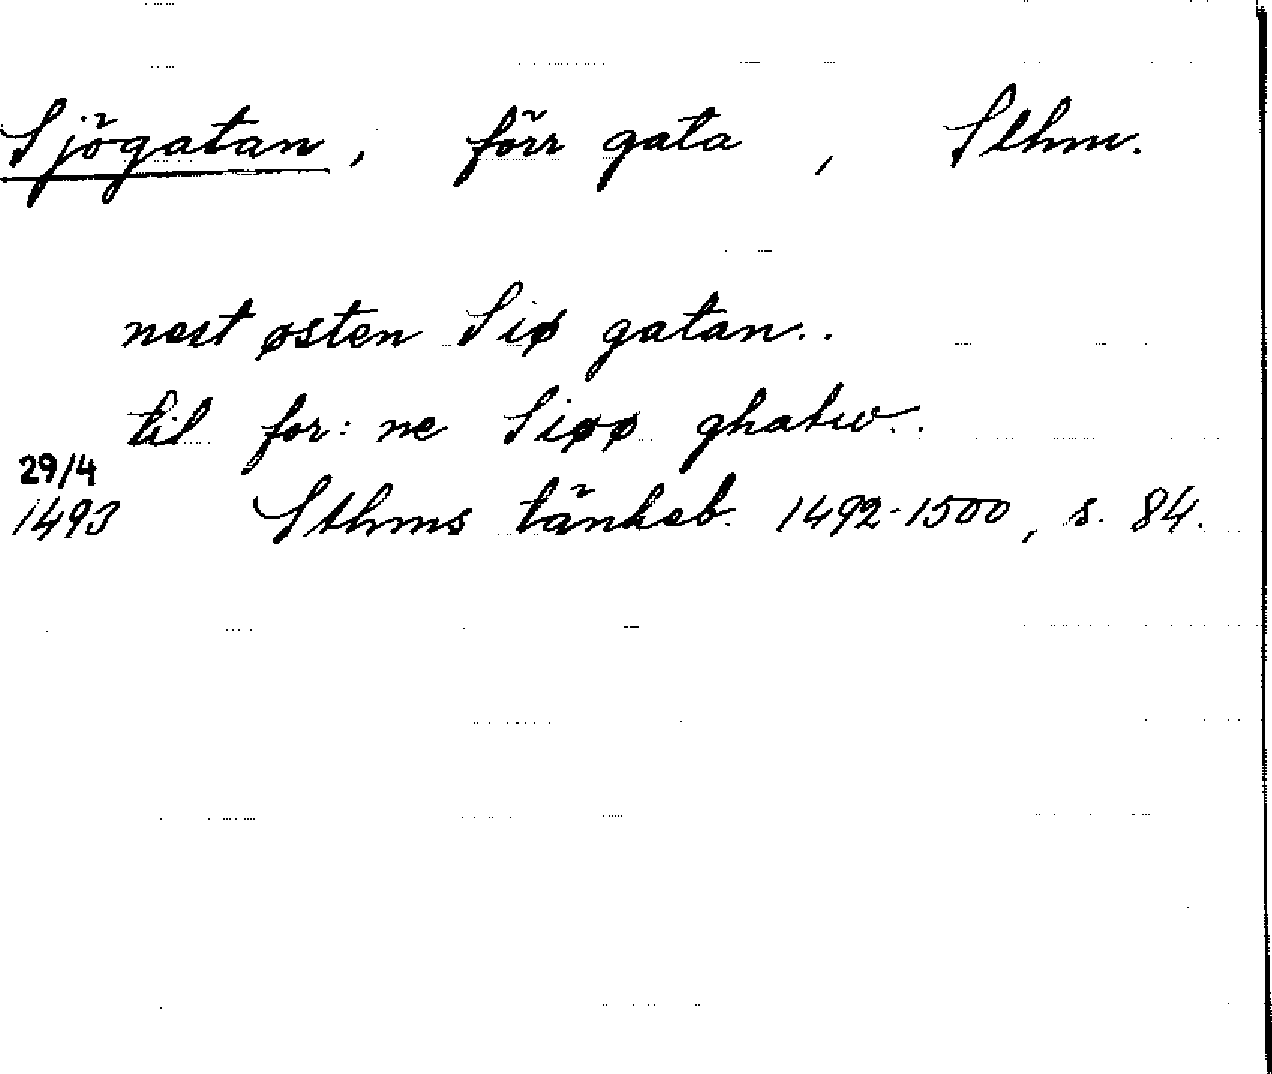 Sjögatan, förr gata, Sthm.
nest østen Siø gatan..
til for:ne Siøø ghatw..
29/4
1493 Sthms tänkeb. 1492-1500, s. 84.